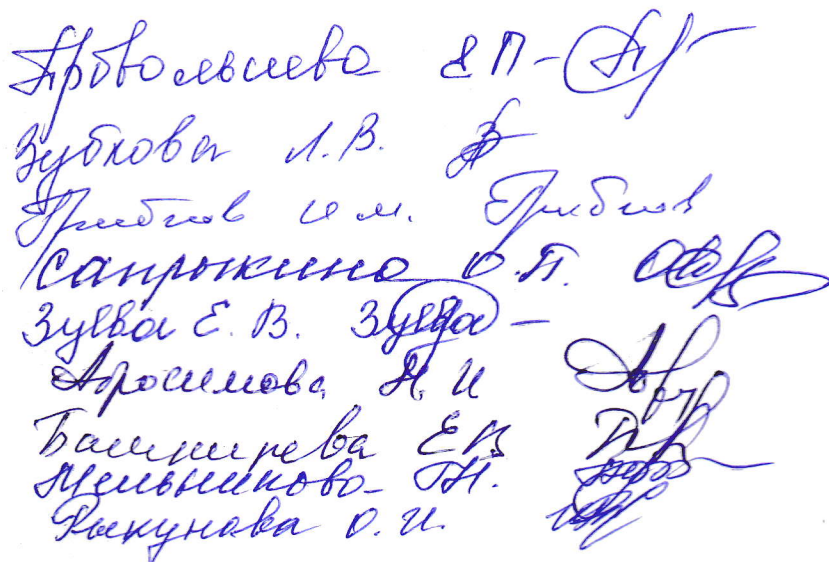 Провальнева ЕП -
Зубкова Л.В.
Грибков И м. Грибков
Сапрыкина О.П.
Зуева Е.В. Зуева -
Абросимова Н.И
Башкирева ЕВ
Мельникова ТН.
Рыкунова О.И.